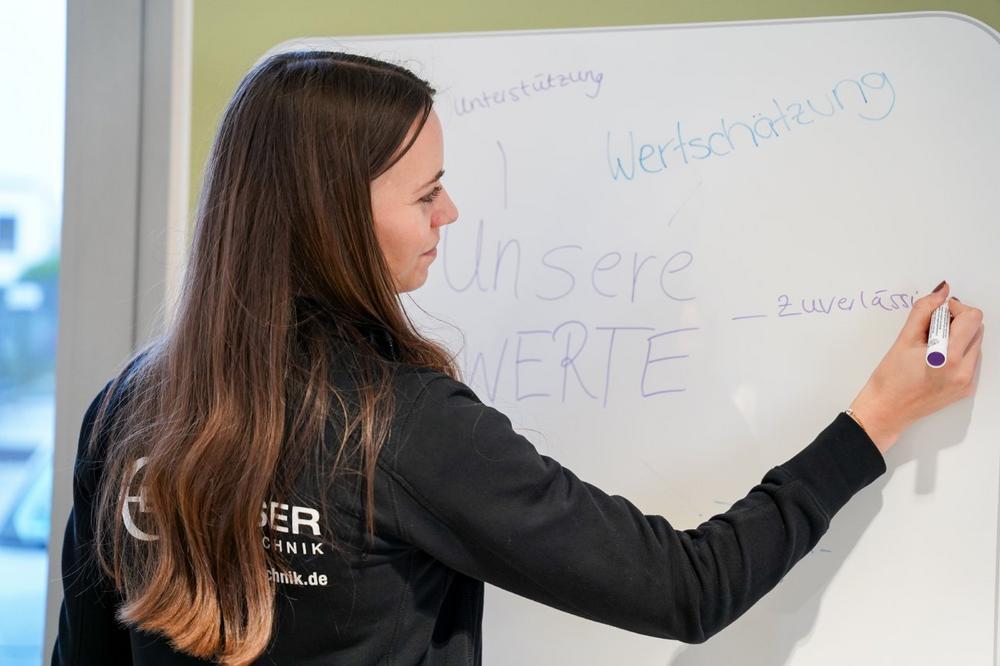 unterstützung
Wertschätzung
Unsere
WERTE
zuverlässi
SER
CHNIK
chnik.de